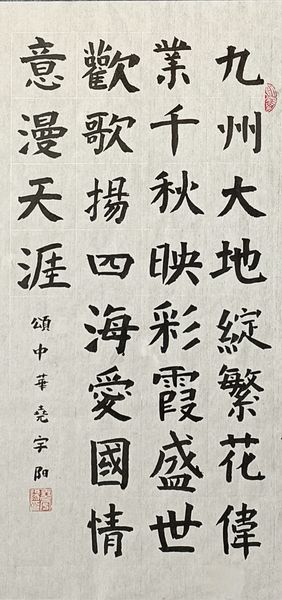 九州大地綻繁花偉
業千秋映彩霞盛世
歡歌揚四海愛國情
意漫天涯
頌中華堯宇阳